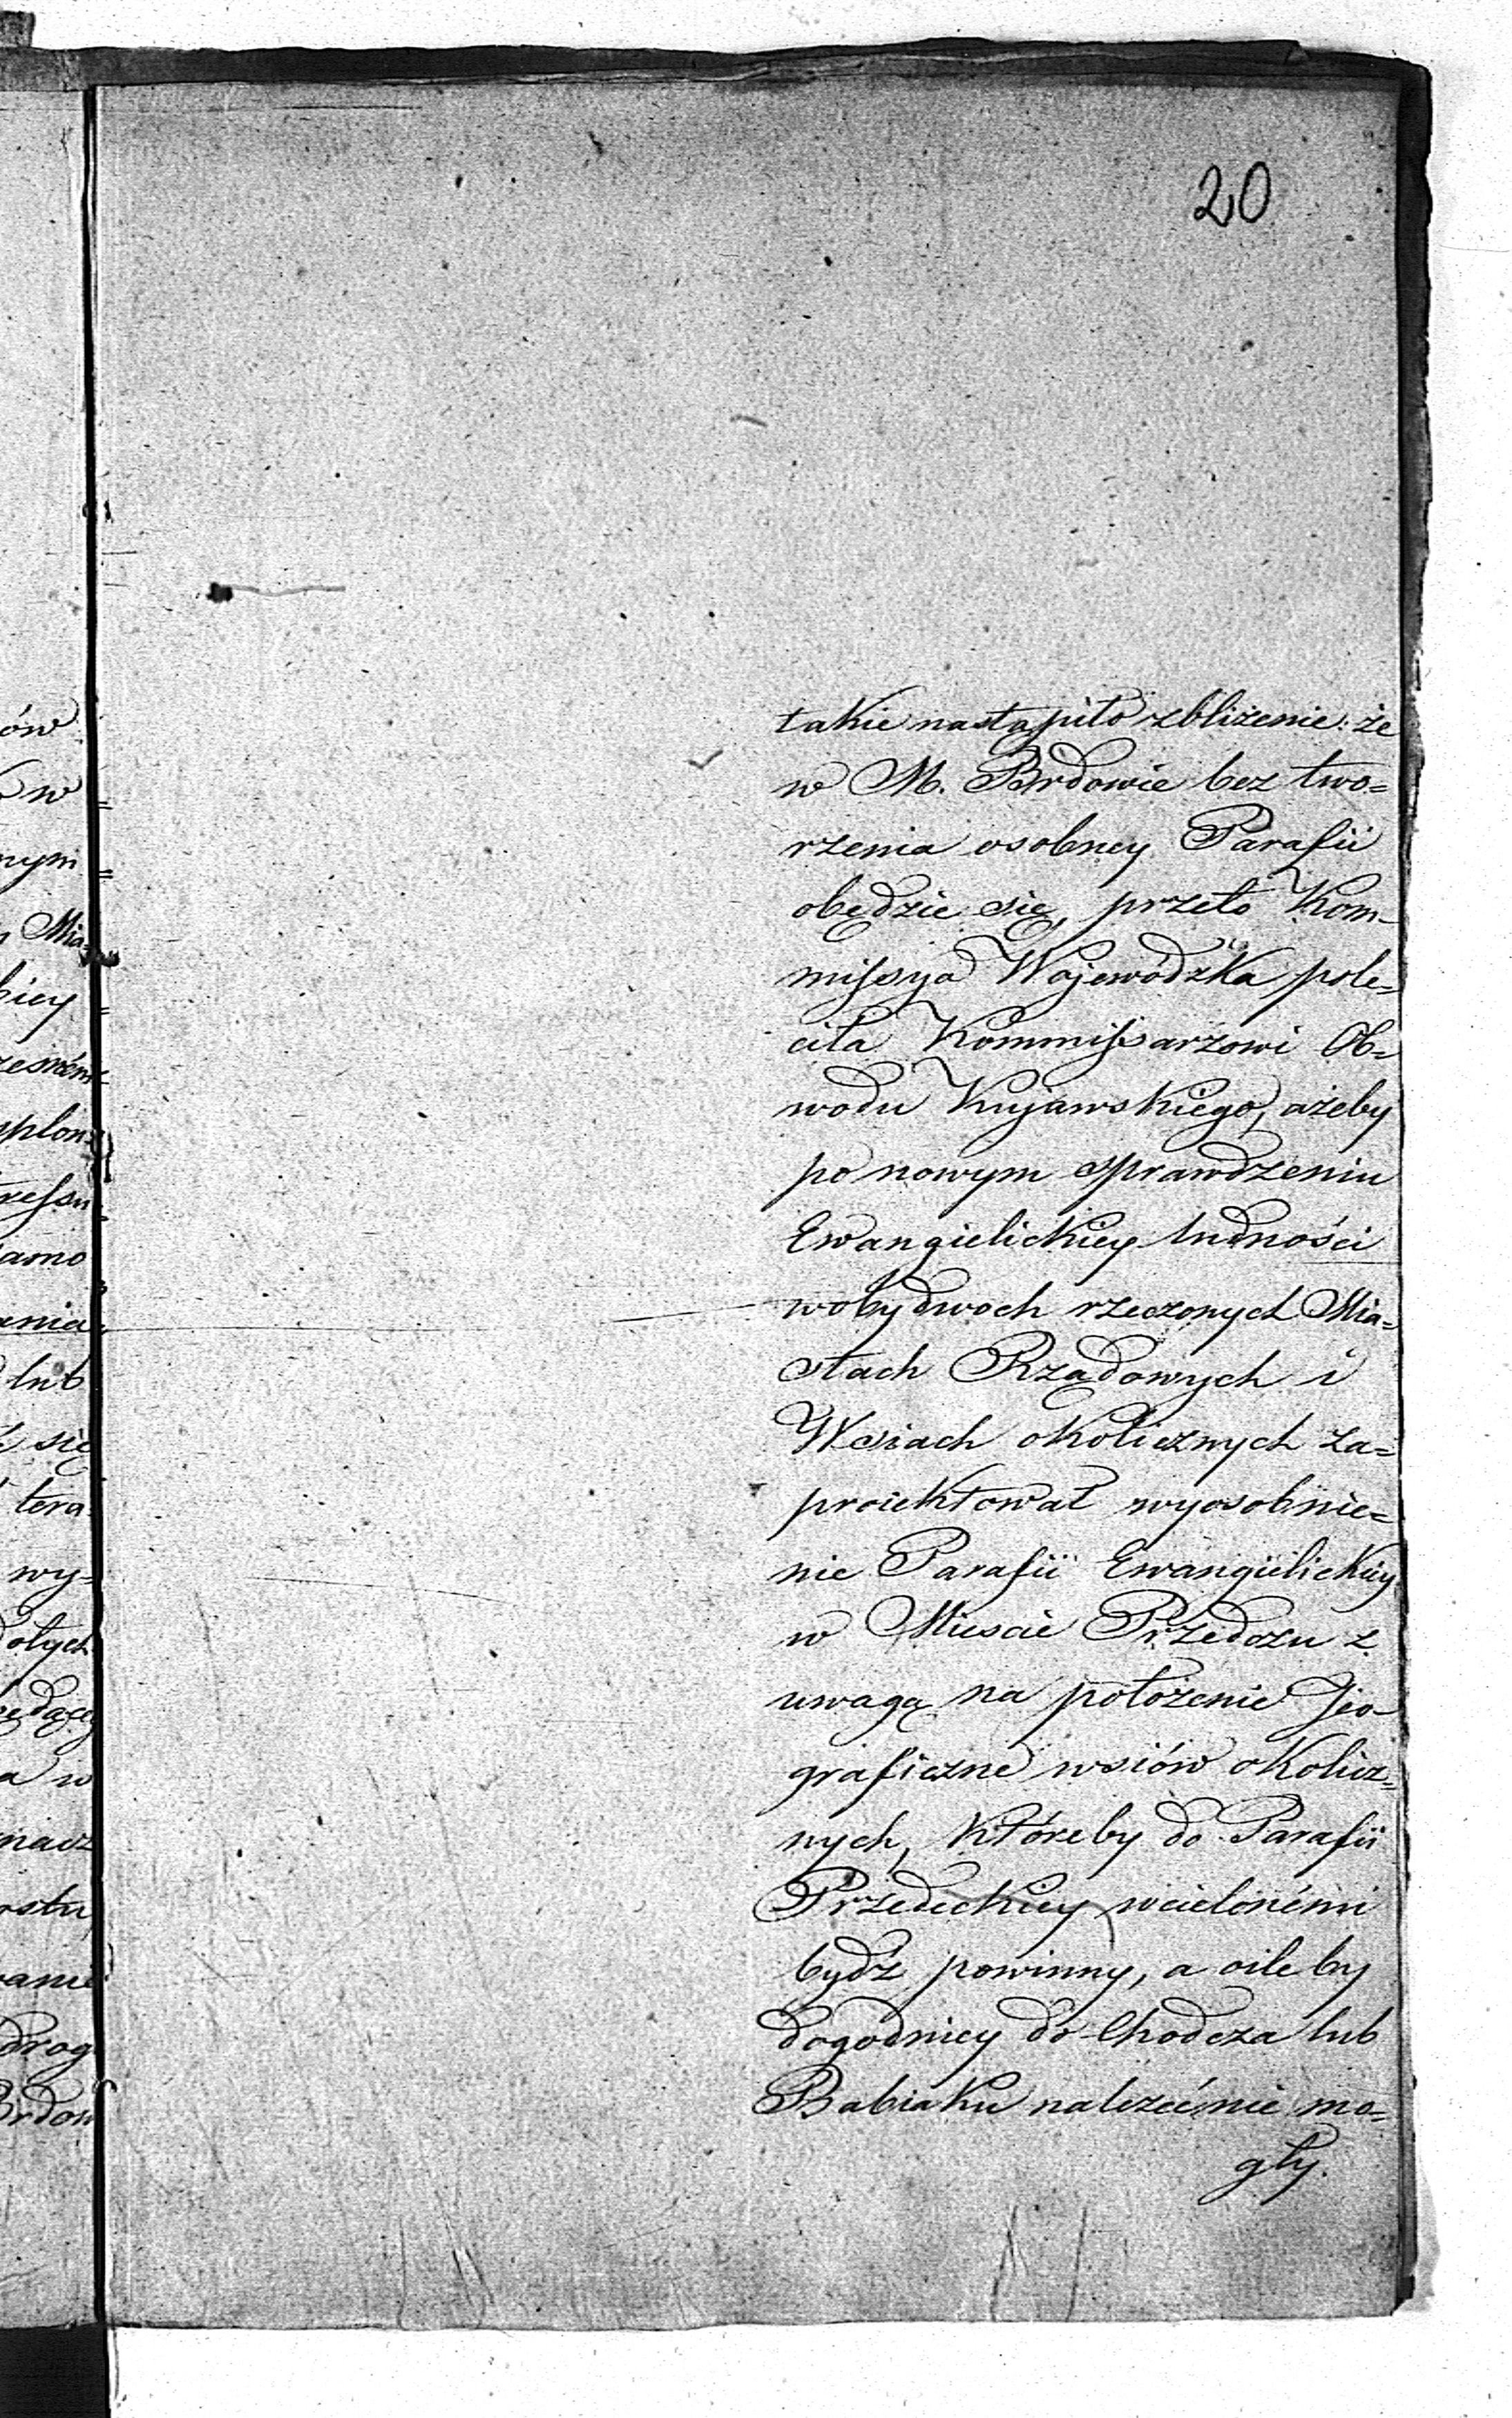 20
takie nastąpiło zbliżenie: że
w M. Brdowie bez two=
rzenia osobney Parafii
obędzie się, przeto Kom-
missya Wojewódzka pole=
ciła Kommissarzowi Ob=
wodu Kujawskiego, ażeby
po nowym sprawdzeniu
Ewangielickiey ludności
w obydwoch rzeczonych Mia=
stach Rządowych i
Wsiach okolicznych za=
proiektował wyosobnie=
nie Parafii Ewangielickiey
w Miescie Przedczu z
uwagą na położenie Jeo-
graficzne wsiów okolicz=
nych, któreby do Parafii
Przedeckiey wcielonémi
bydź powinny, a oileby
dogodniey do Chodcza lub
Babiaku należéć nie mo=
gły.
ów
w=
nym=
Mia=
biey=
amo
ania
lub
się
tera
wy=
a w
nacz
ostu
drog
Brdow